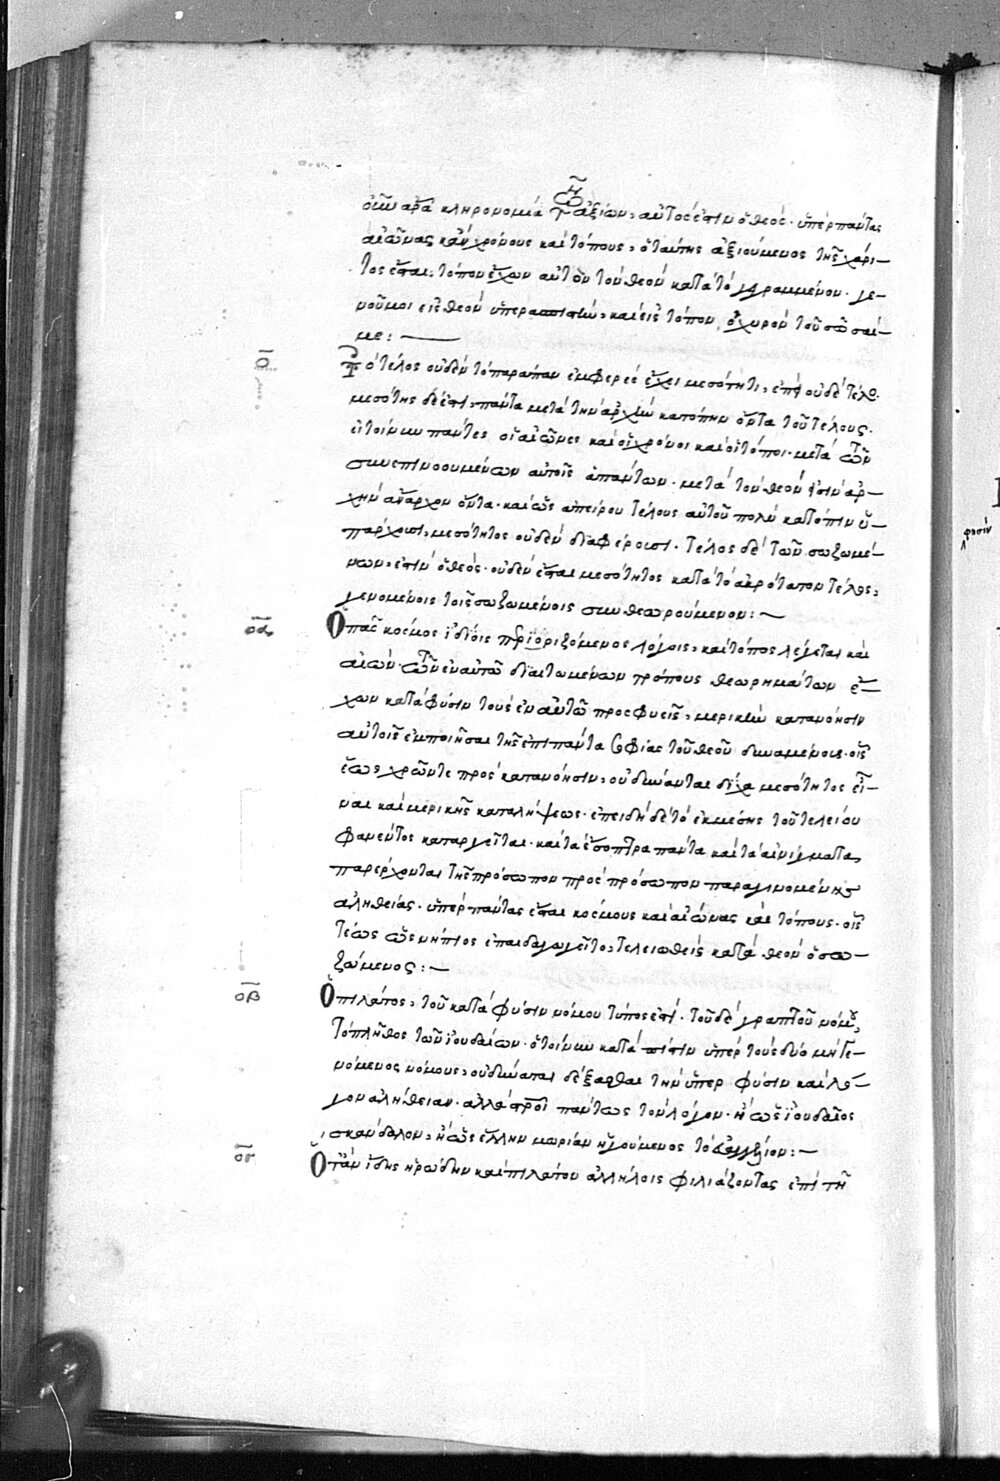 οὖν ἄρα κληρονομία τῶν ἀξίων, αὐτός ἐστιν ὁ θεός· ὑπὲρ πάντας
αἰῶνας καὶ χρόνους καὶ τόπους, ὁ ταύτης ἀξιούμενος τῆς χάρι-
τος ἔσται, τόπον ἔχων αὐτὸν τὸν θεὸν κατὰ τὸ γεγραμμένον· γε-
νοῦ μοι εἰς θεὸν ὑπερασπιστὴν, καὶ εἰς τόπον ὀχυρὸν τοῦ σῶσαί
με:
ο
Τὸ τέλος οὐδὲν τοπαράπαν ἐμφερὲς ἔχει μεσότητι, ἐπεὶ οὐδὲ τέλος·
μεσότης δέ ἐστι, πάντα μετὰ τὴν ἀρχὴν κατόπιν ὄντα τοῦ τέλους·
εἰ τοίνυν πάντες οἱ αἰῶνες καὶ οἱ χρόνοι καὶ οἱ τόποι· μετὰ τῶν
συνεπινοουμένων αὐτοῖς ἁπάντων· μετὰ τὸν θεόν εἰσιν ἀρ-
χὴν ἄναρχον ὄντα· καὶ ὡς ἀπείρου τέλους αὐτοῦ πολὺ κατόπιν ὑ-
πάρχουσι, μεσότητος οὐδὲν διαφέρουσι· τέλος δὲ τῶν σωζομέ-
νων, ἐστὶν ὁ θεός· οὐδὲν ἔσται μεσότητος κατὰ τὸ ἀκρότατον τέλος,
γενομένοις τοῖς σωζομένοις συνθεωρούμενον:
οα
Ὁ πᾶς κόσμος ἰδίοις περιοριζόμενος λόγοις, καὶ τόπος λέγεται καὶ
αἰών· τῶν ἐν αὐτῶ διαιτωμένων τρόπους θεωρημάτων ἔ-
χων κατὰ φύσιν τοὺς ἐν αὐτῶ προσφυεῖς, μερικὴν κατανόησιν
αὐτοῖς ἐμποιῆσαι τῆς ἐπὶ πάντα σοφίας τοῦ θεοῦ δυναμένους· οἷς
ἕως χρῶνται πρὸς κατανόησιν, οὐ δύνανται δίχα μεσότητος εἶ-
ναι καὶ μερικῆς καταλήψεως· ἐπειδὴ δὲ τὸ ἐκ μέρους τοῦ τελείου
φανέντος καταργεῖται· καὶ τὰ ἔσοπτρα πάντα καὶ τὰ αἰνίγματα
παρέρχονται τῆς πρόσωπον πρὸς πρόσωπον παραγινομένης
ἀληθείας· ὑπὲρ πάντας ἔσται κόσμους καὶ αἰῶνας καὶ τόπους· οἷς
τέως ὡς νήπιος ἐπαιδαγωγεῖτο, τελειωθεὶς κατὰ θεὸν ὁ σω-
ζόμενος:
οβ
Ὁ πιλάτος, τοῦ κατὰ φύσιν νόμου τύπος ἐστί· τοῦ δὲ γραπτοῦ νόμου,
τὸ πλῆθος τῶν ἰουδαίων· ὁ τοίνυν κατὰ πίστιν ὑπὲρ τοὺς δύο μὴ γε-
νόμενος νόμους, οὐ δύναται δέξασθαι τὴν ὑπὲρ φύσιν καὶ λό-
γον ἀλήθειαν· ἀλλὰ σταυροῖ πάντως τὸν λόγον· ἢ ὡς ἰουδαῖος
σκάνδαλον, ἢ ὡς ἕλλην μωρίαν ἡγούμενος τὸ εὐαγγέλιον:
ογ
Ὅταν ἴδης ἡρώδην καὶ πιλάτον ἀλλήλοις φιλιάζοντας ἐπὶ τῆ
φυσίν